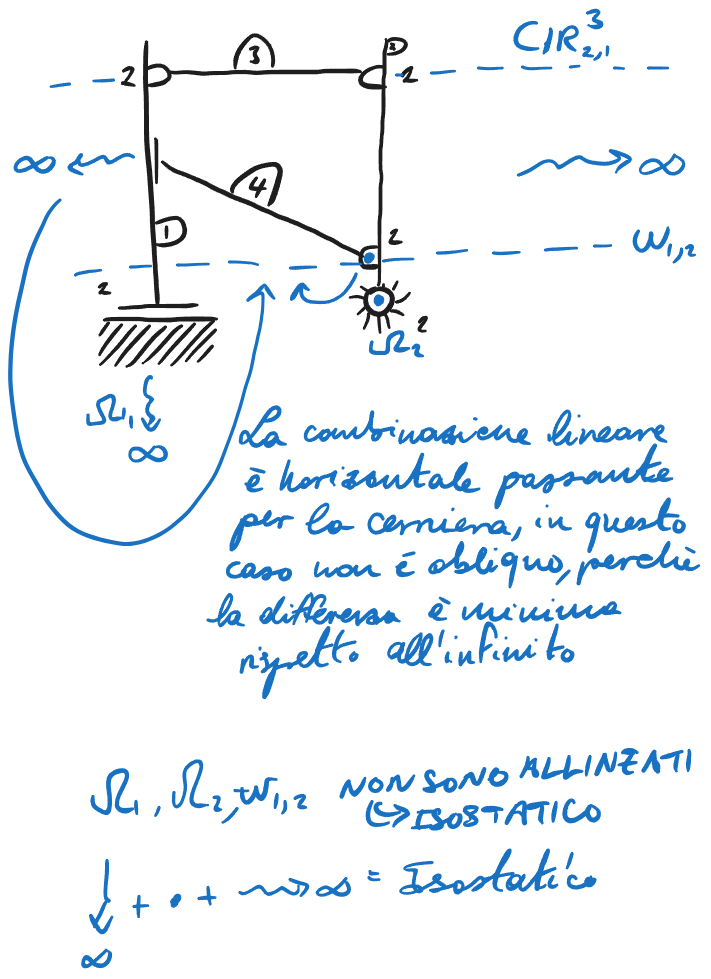 3
CIR³₂,₁
2
2
2
∞
∞
4
1
2
W₁,₂
2
2
Ω₂
Ω₁
∞
La combinazione lineare
è horizontale passante
per la cerniera, in questo
caso non è obliquo, perchè
la differensa è minima
rispetto all'infinito
Ω₁, Ω₂, W₁,₂ NON SONO ALLINEATI
↳ ISOSTATICO
↓ + • + ⇝ ∞ = Isostatico
∞